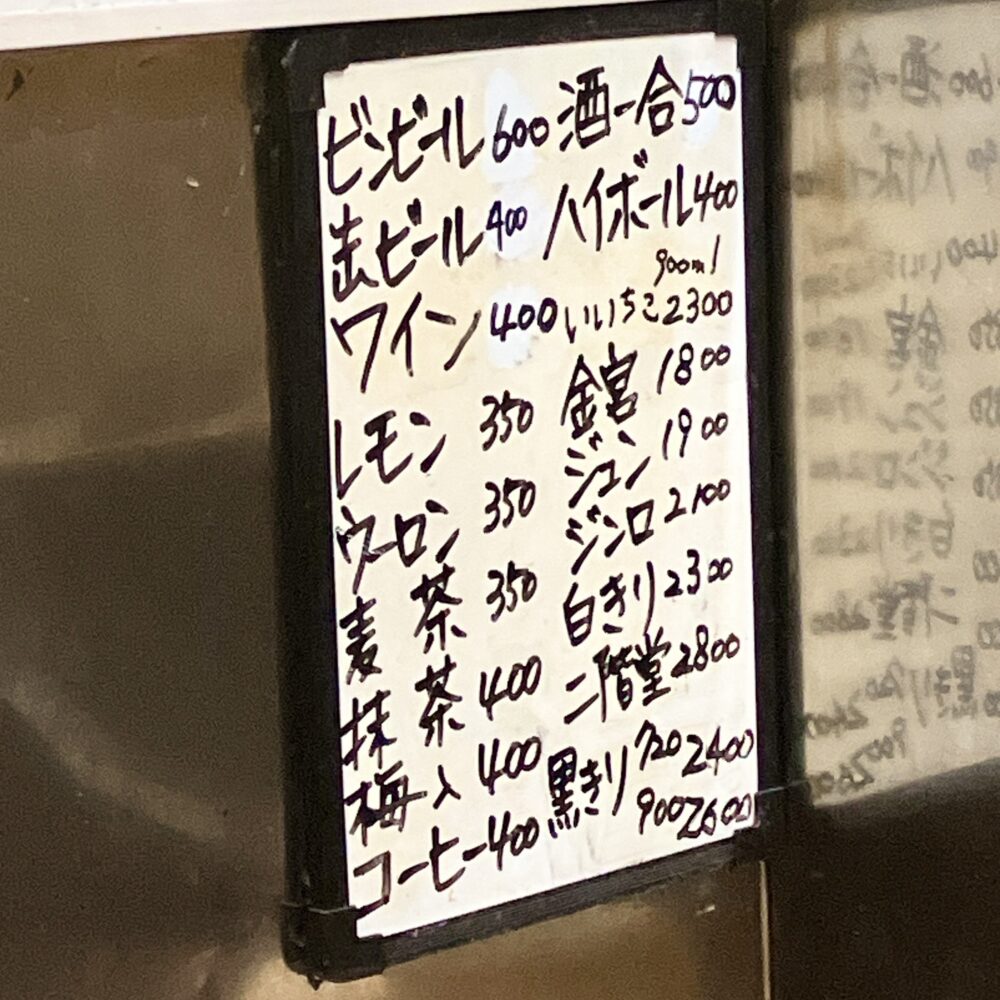 ビンビール600 酒一合500
缶ビール400 ハイボール400
900ml
ワイン 400 いいちこ2300
レモン 350 金宮 1800
ウーロン 350 ジュン 1900
麦茶 350 ジンロ 2100
抹茶 400 白きり2300
梅入 400 二階堂2800
コーヒー400 黒きり 720 2400
900 2600